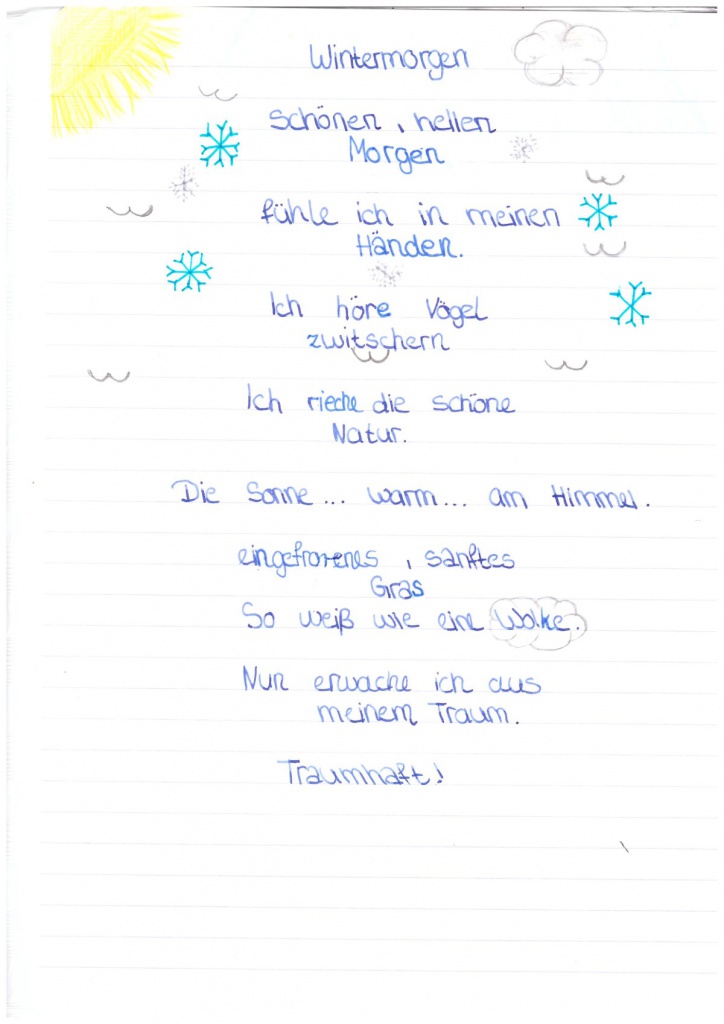 Wintermorgen
Schönen, hellen
Morgen
fühle ich in meinen
Händen.
Ich höre Vögel
zwitschern
Ich rieche die schöne
Natur.
Die Sonne... warm... am Himmel.
eingefrorenes, sanftes
Gras
So weiß wie eine Wolke.
Nun erwache ich aus
meinem Traum.
Traumhaft!